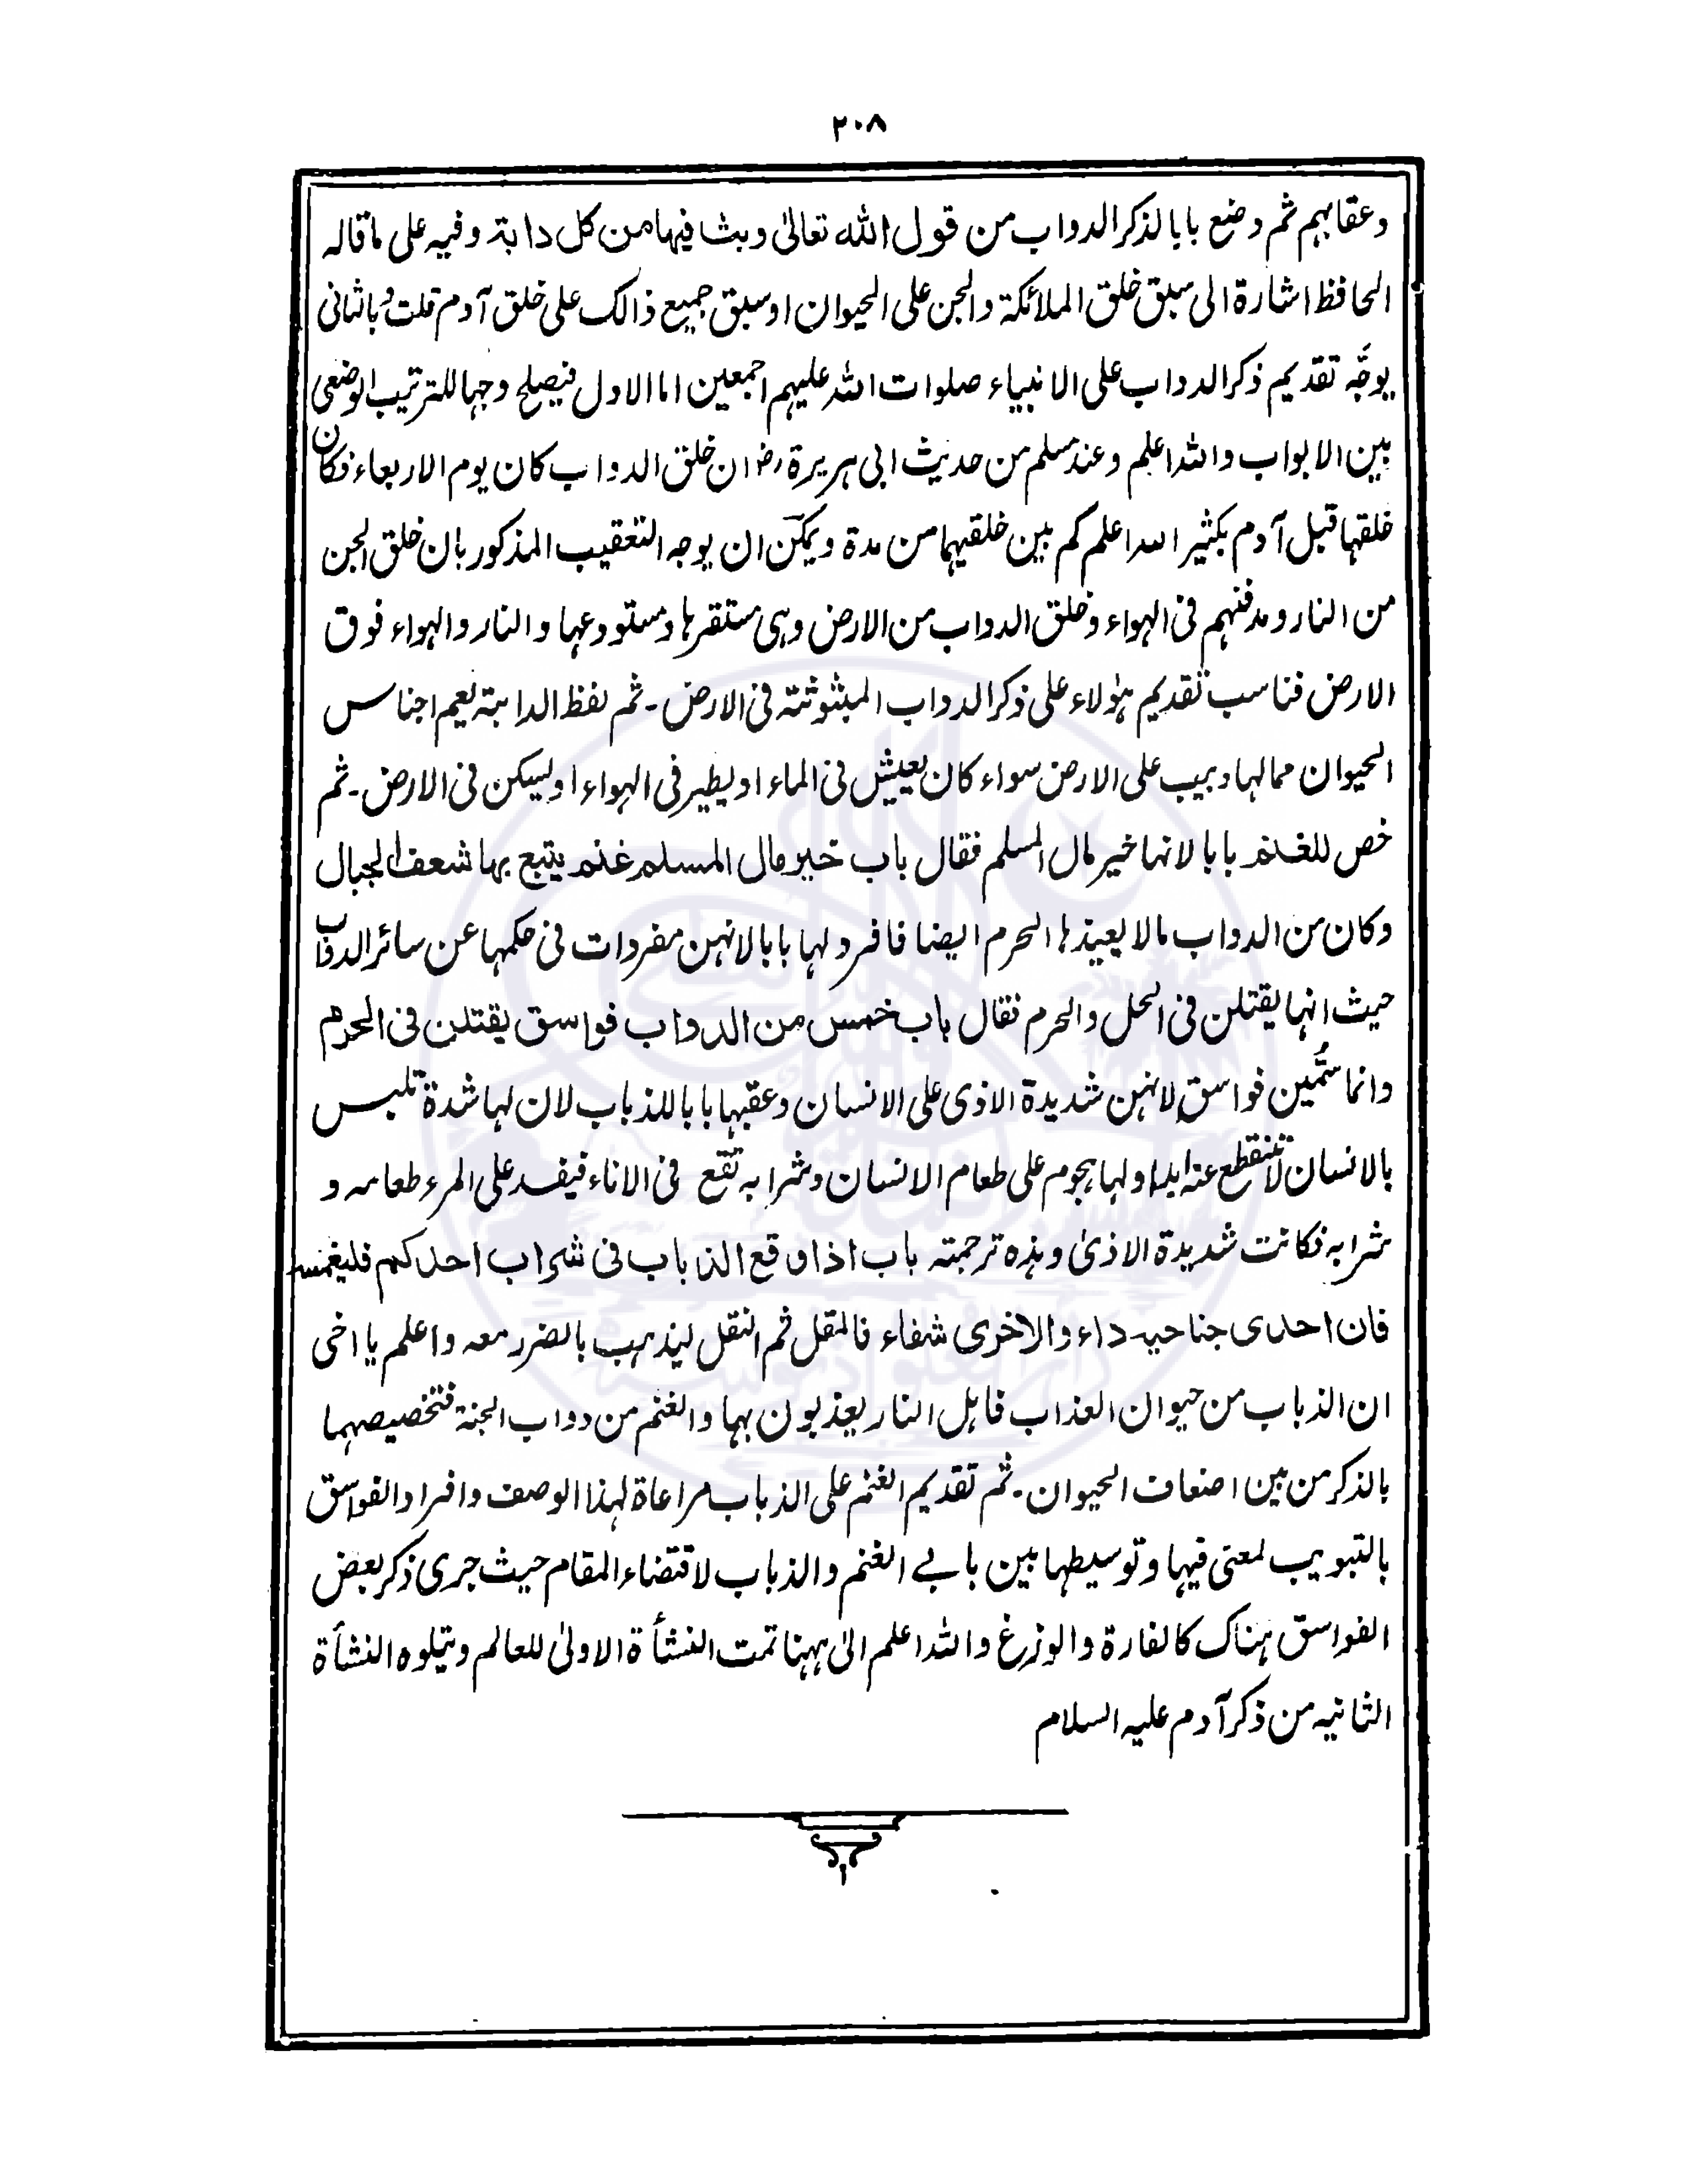 ۲۰۸
وعقابہم ثم وضع بابا لذکر الدواب من قول اللہ تعالیٰ وبث فیہا من کل دابۃ وفیہ علی ماقالہ
الحافظ اشارۃ الی سبق خلق الملائکۃ والجن علی الحیوان اوسبق جمیع ذالک علی خلق آدم قلت وبالثانی
یوجَّہ تقدیم ذکر الدواب علی الانبیاء صلوات اللہ علیہم اجمعین اما الاول فیصلح وجہا للترتیب الوضعی
بین الابواب واللہ اعلم وعند مسلم من حدیث ابی ہریرۃ رضوان خلق الدواب کان یوم الاربعاء فکان
خلقہا قبل آدم بکثیر اللہ اعلم کم بین خلقیہما من مدۃ ویمکن ان یوجہ التعقیب المذکور بان خلق الجن
من النار ومدفنہم فی الہواء وخلق الدواب من الارض وہی مستقرہا ومستودعہا والنار والہواء فوق
الارض فناسب تقدیم ہٰولاء علی ذکر الدواب المبثوثتہ فی الارض۔ ثم لفظ الدابۃ یعم اجناس
الحیوان ممالہا دبیب علی الارض سواء کان یعیش فی الماء اویطیر فی الہواء اویسکن فی الارض۔ ثم
خص للغنم بابا لانہا خیر مال المسلم فقال باب خیر مال المسلم غنم یتبع بہا شعف الجبال
وکان من الدواب مالا یعیذہا الحرم ایضا فافرد لہا بابا لانہن مفردات فی حکمہا عن سائر الدواب
حیث انہا یقتلن فی الحل والحرم فقال باب خمس من الدواب فواسق یقتلن فی الحرم
وانما سُمّین فواسق لانہن شدیدۃ الاذی علی الانسان وعقبہا بابا للذباب لان لہا شدۃ تلبس
بالانسان لا تنقطع عنہ ابدا ولہا ہجوم علی طعام الانسان وشرابہ تقع فی الاناء فیفسد علی المرء طعامہ و
شرابہ فکانت شدیدۃ الاذیٰ وہذہ ترجمتہ باب اذا وقع الذباب فی شراب احدکم فلیغمسہ
فان احدی جناحیہ داء والاخری شفاء فالمقل ثم النقل لیذہب بالضرر معہ واعلم یا اخی
ان الذباب من حیوان العذاب فاہل النار یعذبون بہا والغنم من دواب الجنۃ فتخصیصہما
بالذکر من بین اصناف الحیوان۔ ثم تقدیم الغنم علی الذباب مراعاۃ لہذا الوصف وافراد الفواسق
بالتبویب لمعنی فیہا وتوسیطہا بین بابے الغنم والذباب لاقتضاء المقام حیث جری ذکر بعض
الفواسق ہناک کالفارۃ والوزغ واللہ اعلم الیٰ ہہنا تمت النشأۃ الاولیٰ للعالم ویتلوہ النشأۃ
الثانیہ من ذکر آدم علیہ السلام